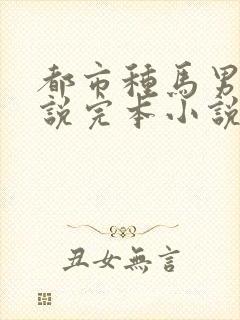 都市種馬男
說完本小說
丑女無言